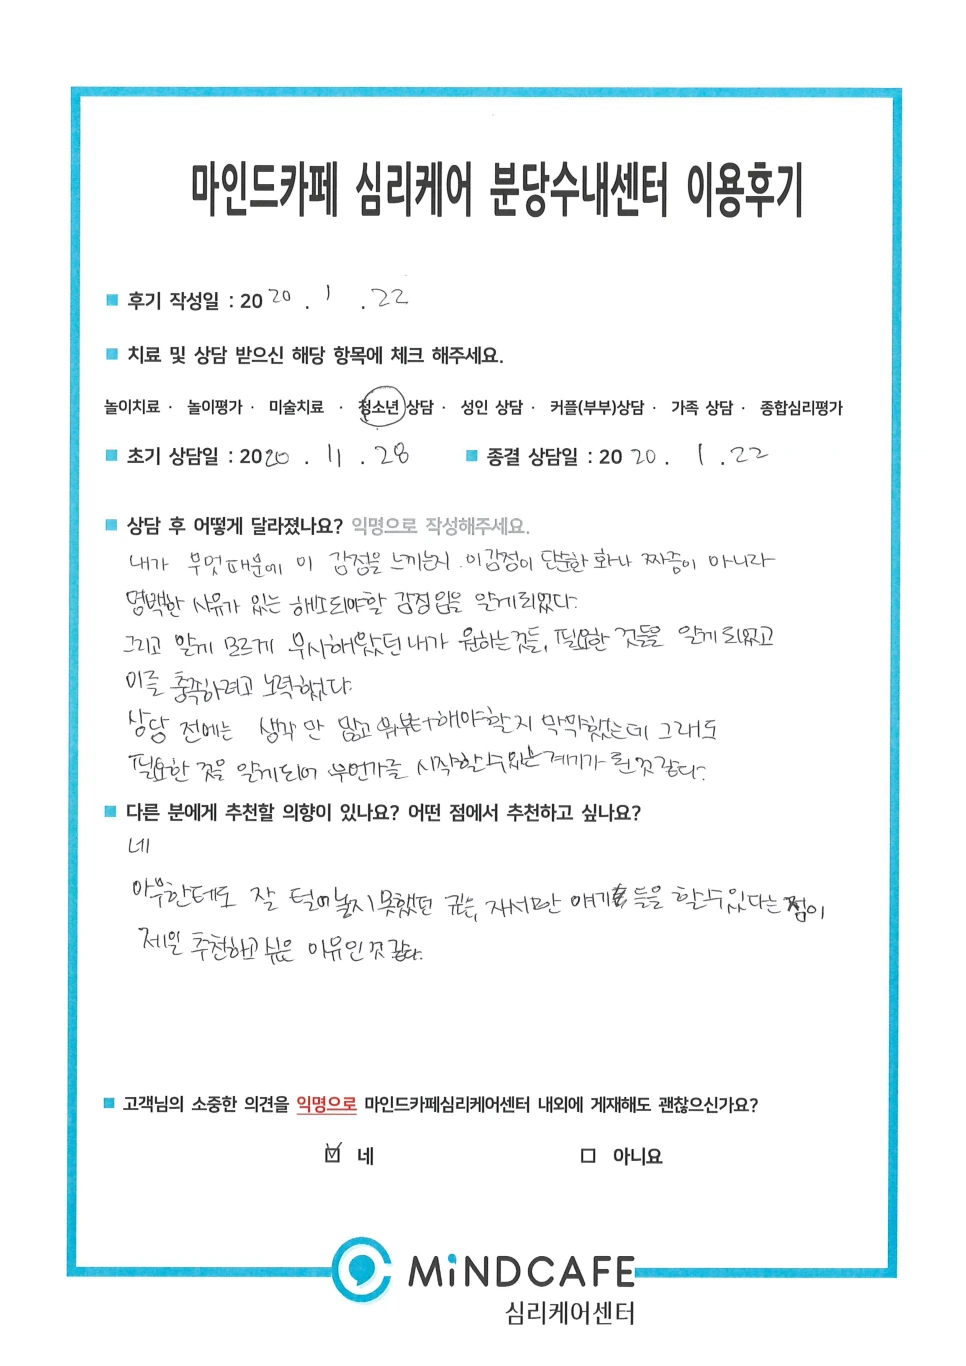 마인드카페 심리케어 분당수내센터 이용후기
후기 작성일 : 20 20 . 1 . 22
치료 및 상담 받으신 해당 항목에 체크 해주세요.
놀이치료 · 놀이평가 · 미술치료 · 청소년 상담 · 성인 상담 · 커플(부부)상담 · 가족 상담 · 종합심리평가
초기 상담일 : 20 20 . 11 . 28 종결 상담일 : 20 20 . 1 . 22
상담 후 어떻게 달라졌나요? 익명으로 작성해주세요.
내가 무엇때문에 이 감정을 느끼는지. 이감정이 단순한 화나 짜증이 아니라
명백한 사유가 있는 해소되야할 감정임을 알게되었다.
그리고 알게 모르게 무시해왔던 내가 원하는것들, 필요한 것들을 알게 되었고
이를 충족하려고 노력했다.
상담 전에는 생각 만 많고 해야할지 막막했는데 그래도
필요한 것을 알게되어 무언가를 시작할수있는 계기가 된것 같다.
다른 분에게 추천할 의향이 있나요? 어떤 점에서 추천하고 싶나요?
네
아무한테도 잘 털어놓지 못했던 깊은, 자세한 얘기들을 할수있다는 점이
제일 추천하고싶은 이유인것 같다.
고객님의 소중한 의견을 익명으로 마인드카페심리케어센터 내외에 게재해도 괜찮으신가요?
네 아니요
MiNDCAFE
심리케어센터